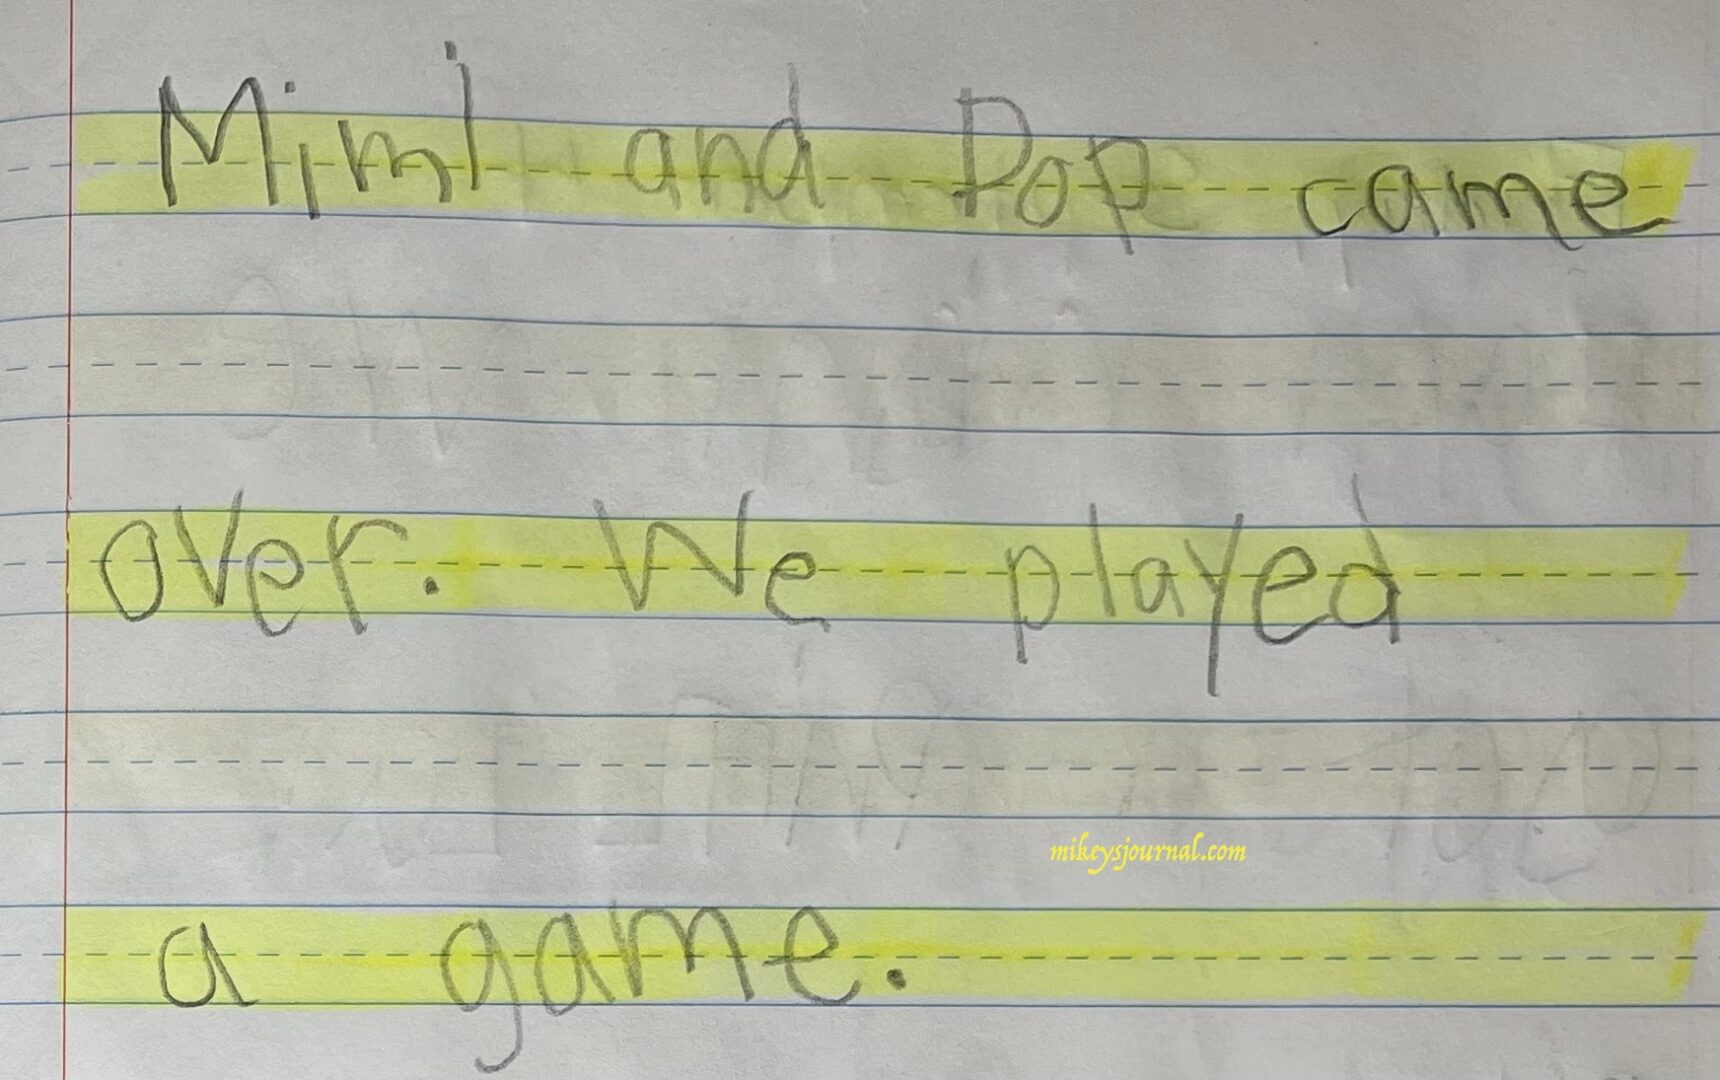 Mimi and Pop came
over. We played
mikeysjournal.com
a game.